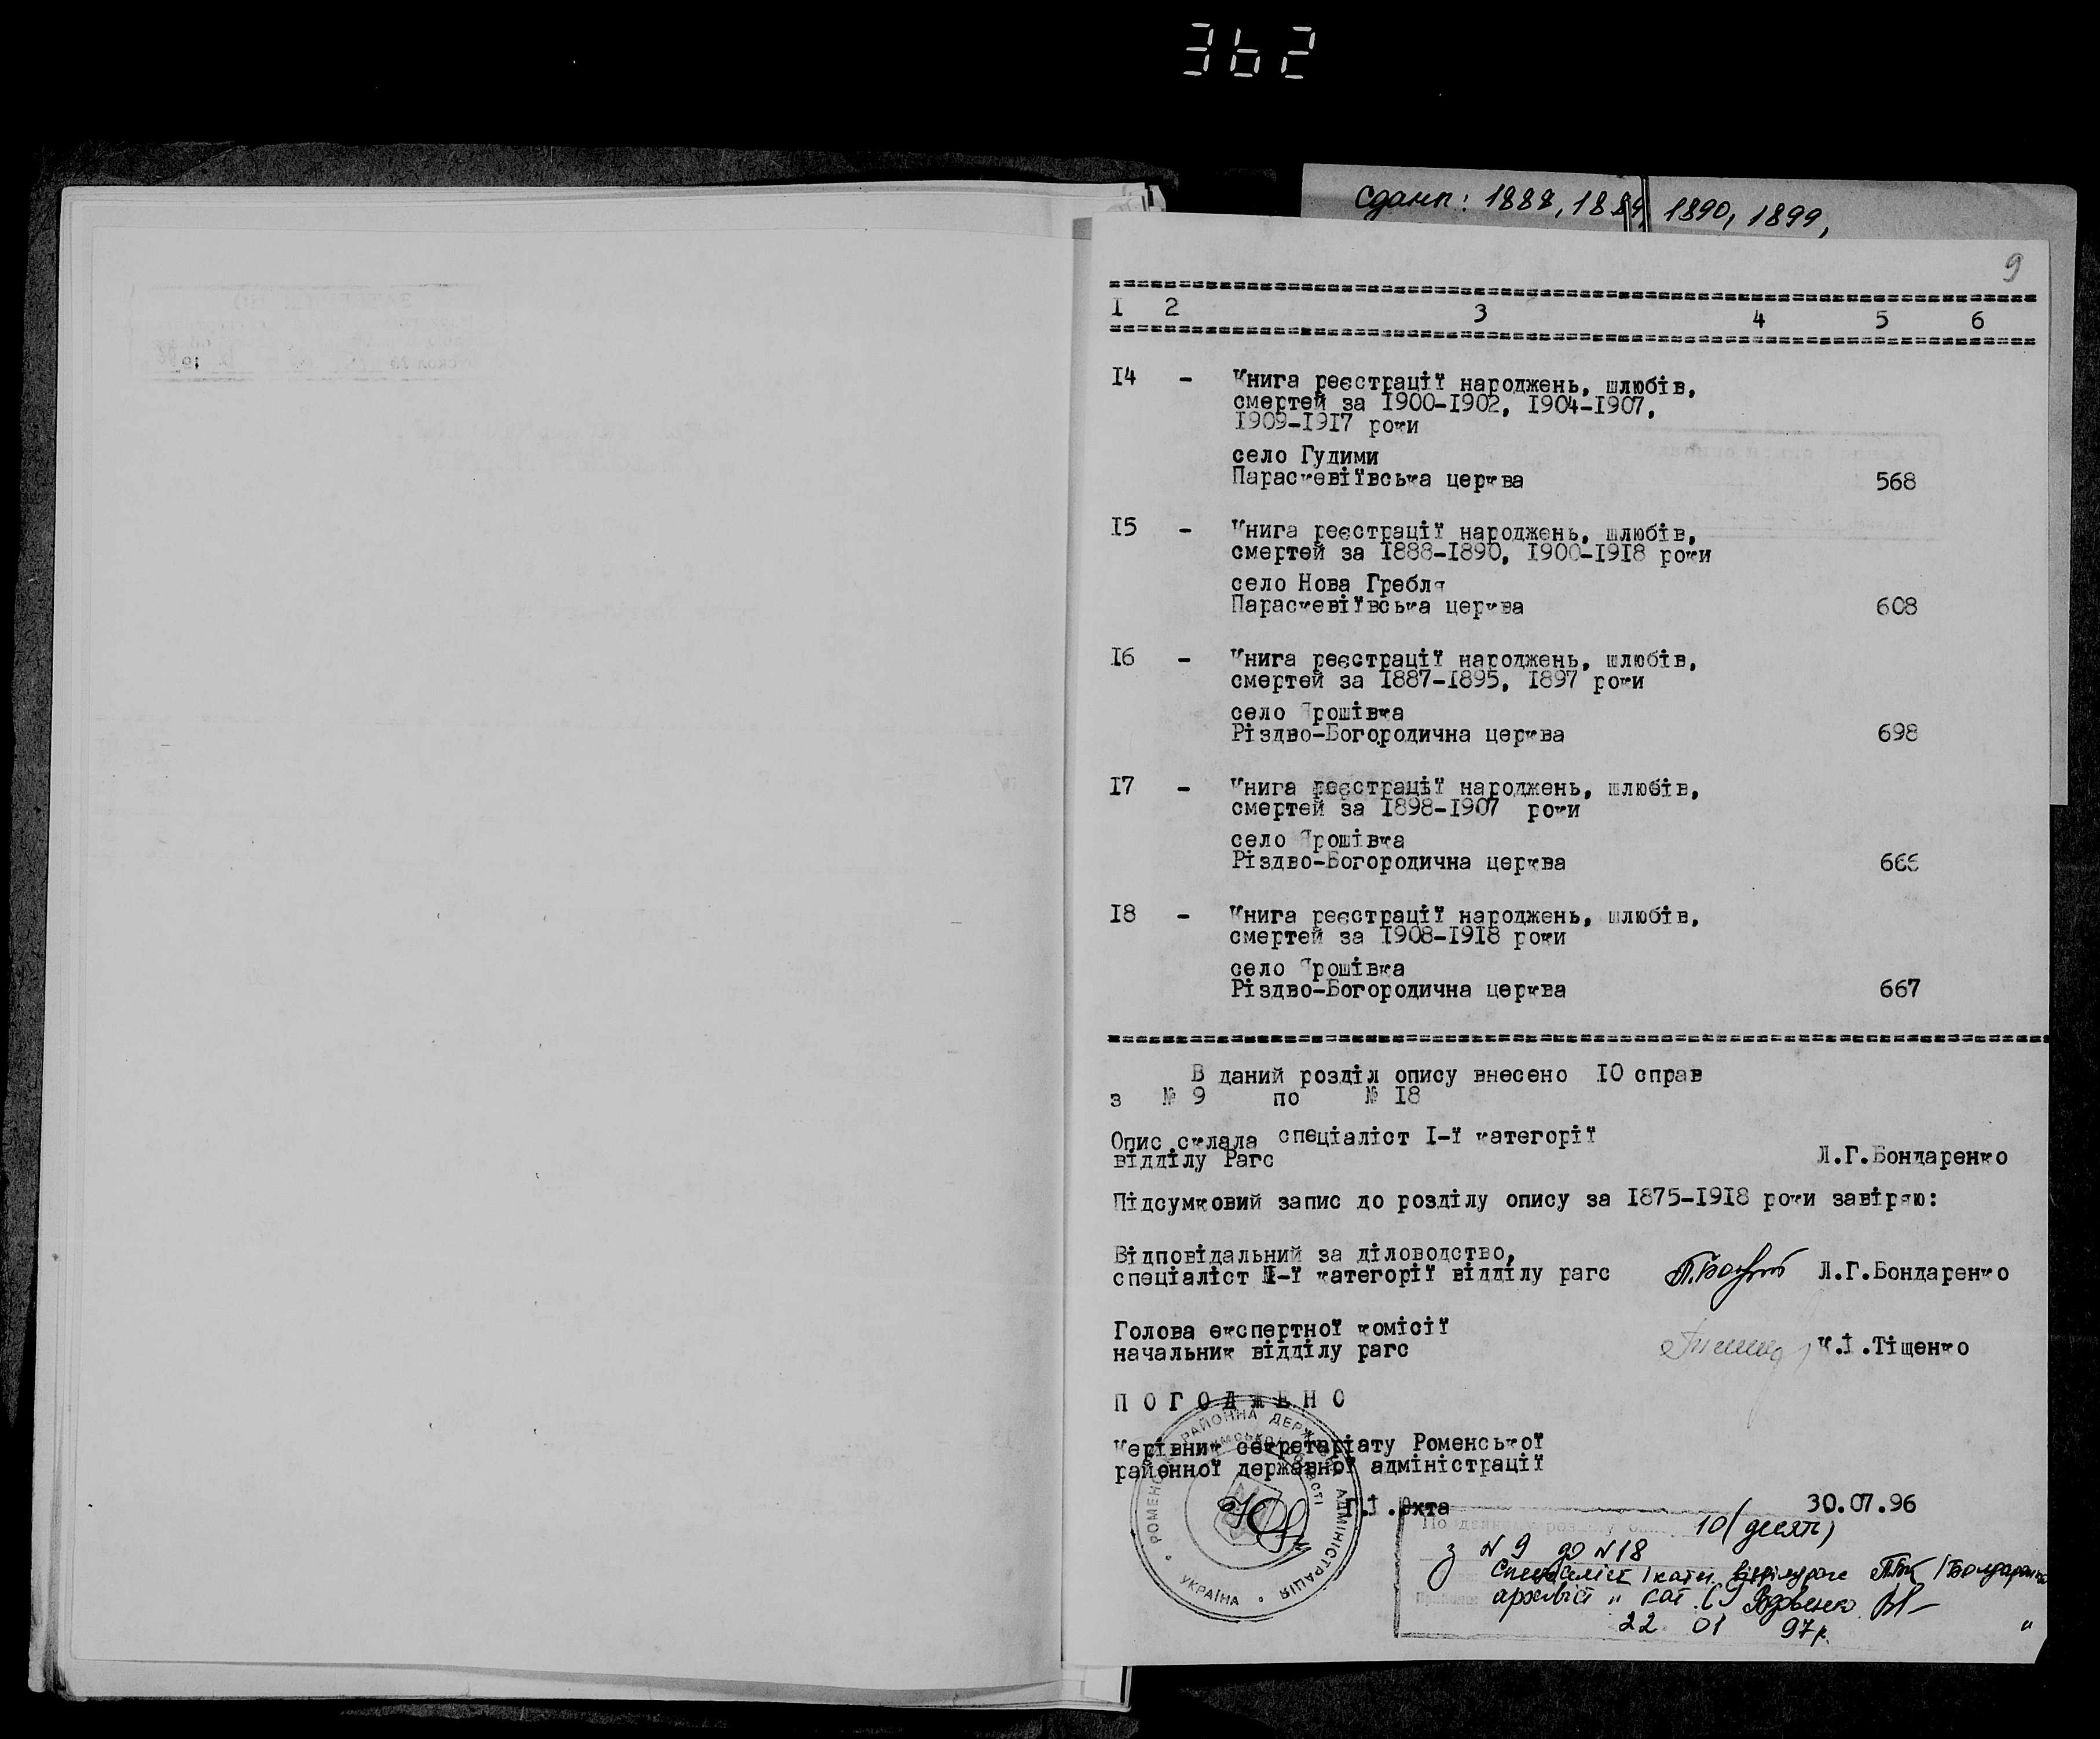 362
1888, 1889, 1890, 1899,
9
1 2 3 4 5 6
I4 - Книга реєстрації народжень, шлюбів,
смертей за I900-I902, I904-I907,
I909-I9I7 роки
село Гудими
Параскевіївська церква 568
I5 - Книга реєстрації народжень, шлюбів,
смертей за I888-I890, I900-I9I8 роки
село Нова Гребля
Параскевіївська церква 608
I6 - Книга реєстрації народжень, шлюбів,
смертей за I887-I895, I897 роки
село Ярошівка
Різдво-Богородична церква 698
I7 - Книга реєстрації народжень, шлюбів,
смертей за I898-I907 роки
село Ярошівка
Різдво-Богородична церква 666
I8 - Книга реєстрації народжень, шлюбів,
смертей за I908-I9I8 роки
село Ярошівка
Різдво-Богородична церква 667
В даний розділ опису внесено IO справ
з № 9 по № I8
Опис склала спеціаліст I-ї категорії
відділу Рагс Л.Г.Бондаренко
Підсумковий запис до розділу опису за I875-I9I8 роки завіряю:
Відповідальний за діловодство,
спеціаліст I-ї категорії відділу рагс Л.Г.Бондаренко
Голова експертної комісії
начальник відділу рагс К.І.Тіщенко
П О Г О Д Ж Е Н О
Керівник секретаріату Роменської
районної державної адміністрації
Г.І.Юхта 30.07.96
РАЙОННА АДМІНІСТРАЦІЯ
УКРАЇНА
10 (десять)
з № 9 до № 18
Спеціаліст І кат. /Бондаренко
архівіст
22 01 97р.